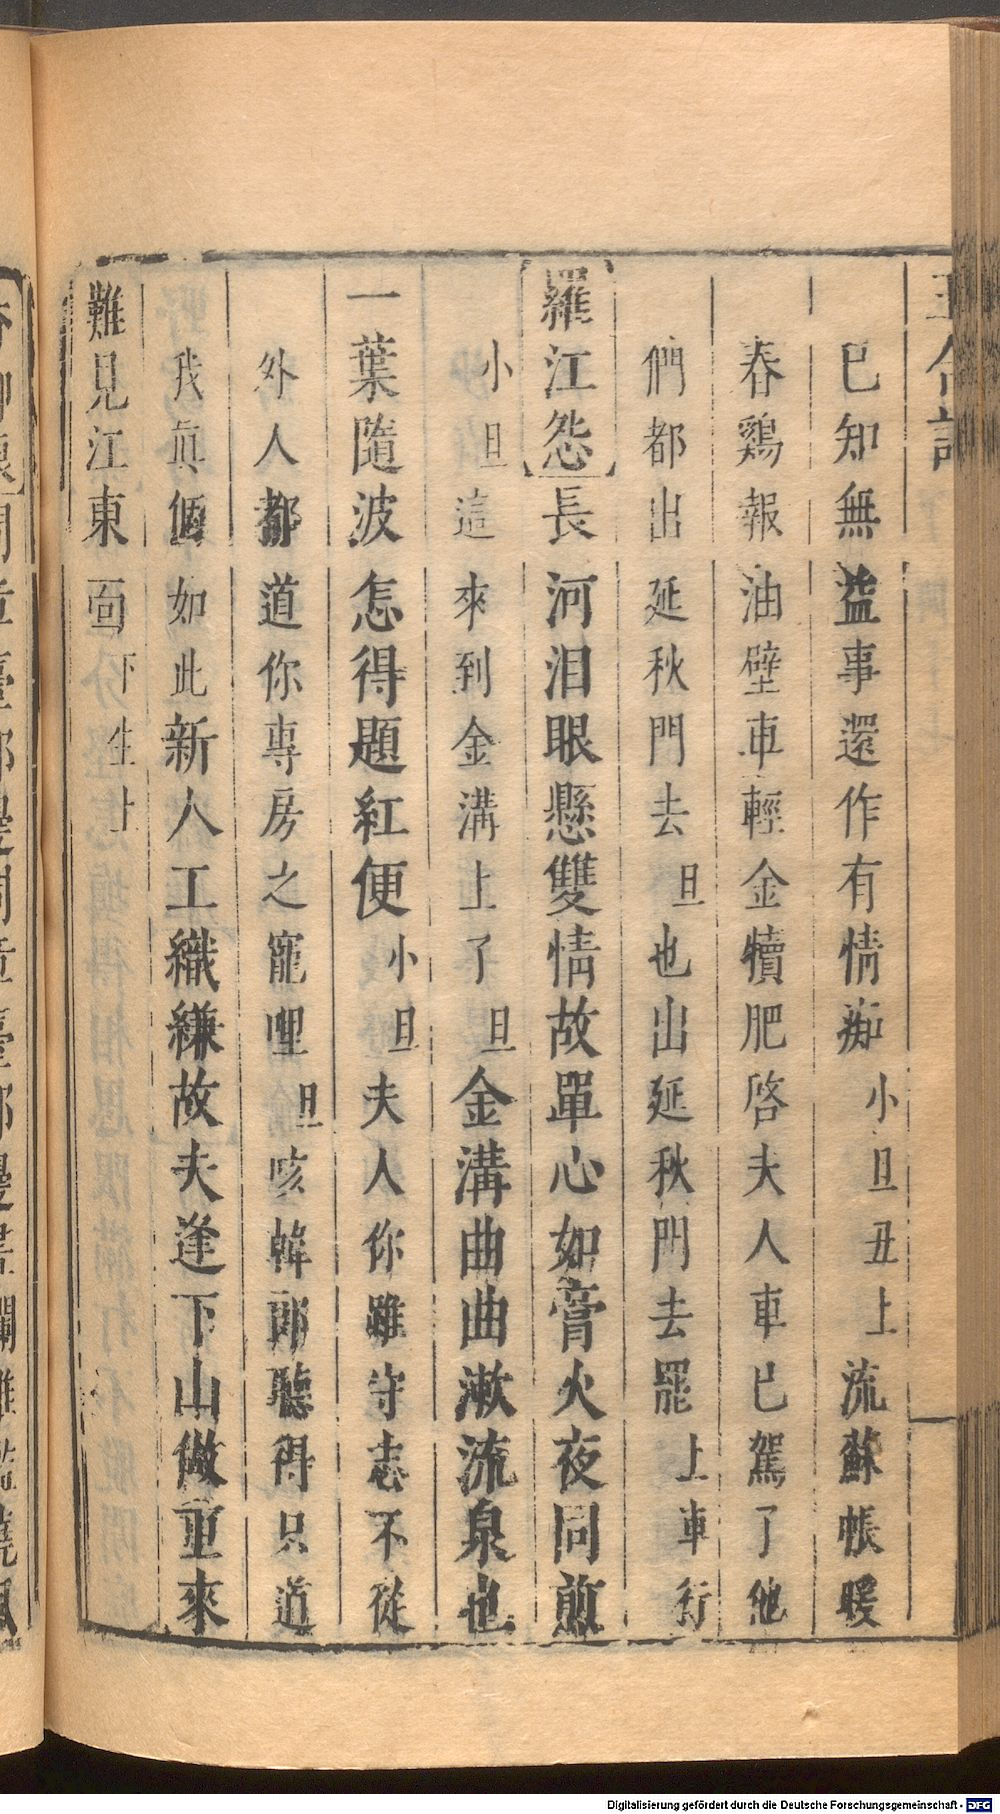 已知無益事還作有情痴小旦丑上流蘇帳暖
春鷄報油壁車輕金犢肥啓夫人車已駕了他
們都出延秋門去旦也出延秋門去罷上車行
羅江怨長河泪眼懸雙情故單心如膏火夜同煎
小旦這來到金溝上了旦金溝曲曲漱流泉也
一葉隨波怎得題紅便小旦夫人你雖守志不從
外人都道你專房之寵哩旦咳韓郎聽得只道
我眞個如此新人工織縑故夫逢下山做重來
難見江東面下生上
Digitalisierung gefördert durch die Deutsche Forschungsgemeinschaft - DFG